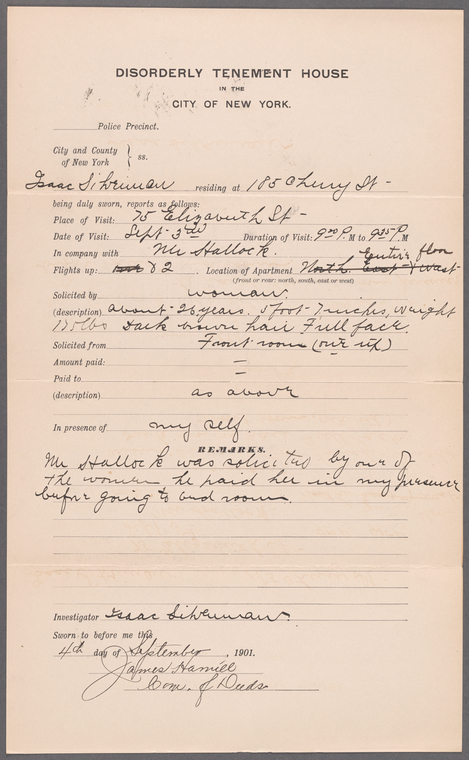 DISORDERLY TENEMENT HOUSE
IN THE
CITY OF NEW YORK.
Police Precinct.
City and County
of New York } ss.
Isaac Silverman residing at 185 Cherry St -
being duly sworn, reports as follows:
Place of Visit: 75 Elizabeth St -
Date of Visit: Sept - 3rd Duration of Visit: 9 00 P.M to 9 35 P.M
In company with Mr Hallock.
Flights up: & 2 Location of Apartment North East & West Entire floor
(front or rear: north, south, east or west)
Solicited by woman.
(description) about - 26 years. 5 foot - 7 inches, weight
lbs Dark brown hair Full face.
Solicited from Front room (one up)
Amount paid: =
Paid to =
(description) as above
In presence of my self.
REMARKS.
Mr Hallock was solicited by one of
the women he paid her in my presence
before going to bed room.
Investigator Isaac Silverman.
Sworn to before me this
4th day of September, 1901.
James Hamill
Com. of Deeds